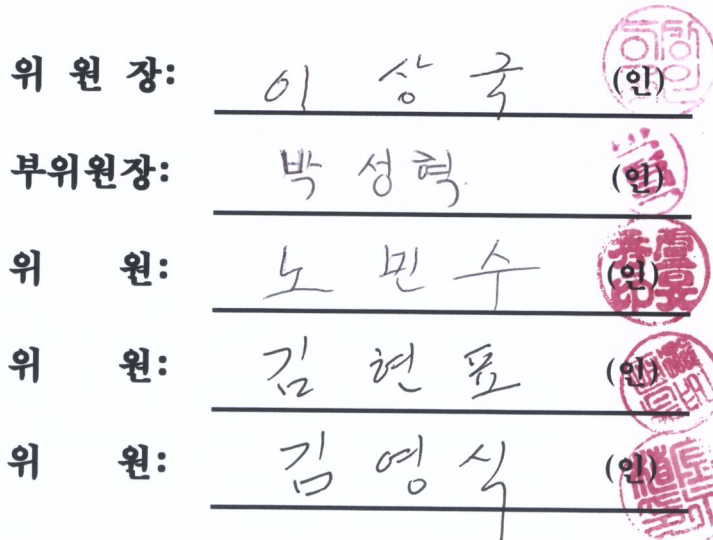 위 원 장: 이 상 국 (인)
부위원장: 박 성 혁 (인)
위 원: 노 민 수 (인)
위 원: 김 현 표 (인)
위 원: 김 영 식 (인)